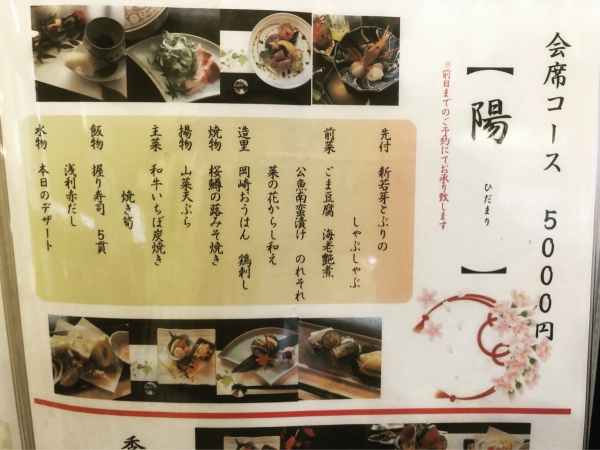 会席コース 5000円
【陽】
ひだまり
※前日までのご予約にてお承り致します
先付 新若芽とぶりの
しゃぶしゃぶ
前菜 ごま豆腐 海老艶煮
公魚南蛮漬け のれそれ
菜の花からし和え
造里 岡崎おうはん 鶏刺し
焼物 桜鱒の蕗みそ焼き
揚物 山菜天ぷら
主菜 和牛いちぼ炭焼き
焼き筍
飯物 握り寿司 5貫
浅利赤だし
水物 本日のデザート
香